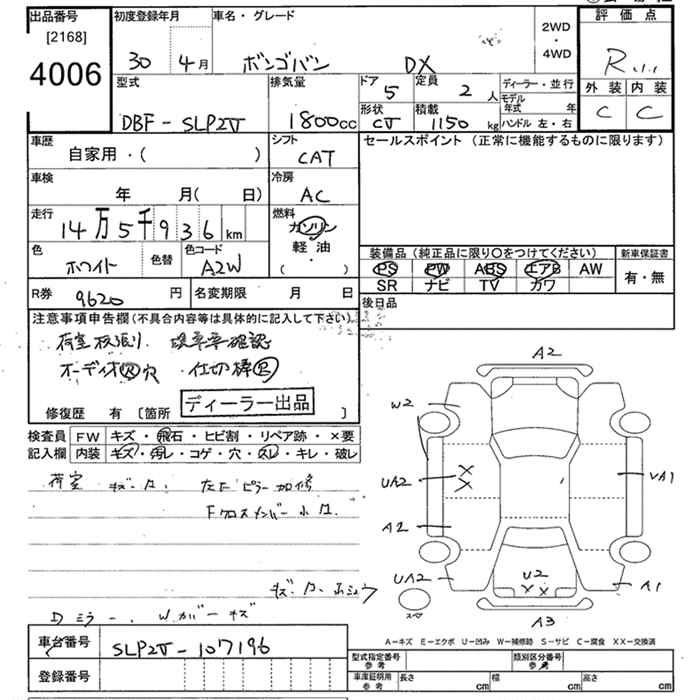 出品番号 初度登録年月 車名・グレード 評価点
[2168]
4006
30年 4月 ボンゴバン DX
2WD
・
4WD
R
外装 内装
C C
型式 排気量 ドア 定員 ディーラー・並行
DBF-SLP2V 1800cc 5 2人
モデル年式 年
形状 積載 ハンドル 左・右
CV 1150kg
車歴 シフト セールスポイント (正常に機能するものに限ります)
自家用・( ) CAT
車検 冷房
年 月(日) AC
走行 燃料
14万5千936km ガソリン
軽油
( )
色 色替 色コード
ホワイト A2W
装備品 (純正品に限り〇をつけてください) 新車保証書
PS PW ABS エアB AW 有・無
SR ナビ TV カワ
R券 名変期限
9620円 月 日
後日品
注意事項申告欄(不具合内容等は具体的に記入して下さい)
荷室板張り 改善率確認
オーディオR穴 仕切棒R
ディーラー出品
修復歴 有 [箇所 ]
検査員 FW キズ・飛石・ヒビ割・リペア跡・×要
記入欄 内装 キズ・汚レ・コゲ・穴・スレ・キレ・破レ
荷室 キズ・凹
Fクロスメンバー小凹
Dミラー、Wカバーキズ
A2
W2
UA2
UA1
A2
UA2
U2
A1
スペ
A3
A-キズ E-エクボ U-凹み W-補修跡 S-サビ C-腐食 XX-交換済
車台番号 SLP2V-107196
登録番号
型式指定番号 参考 類別区分番号 参考
車庫証明用 参考 長さ cm 幅 cm 高さ cm